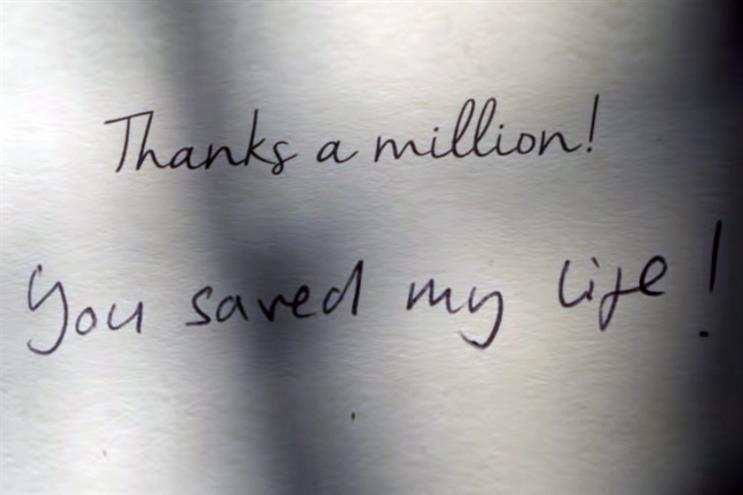 Thanks a million!
You saved my life!